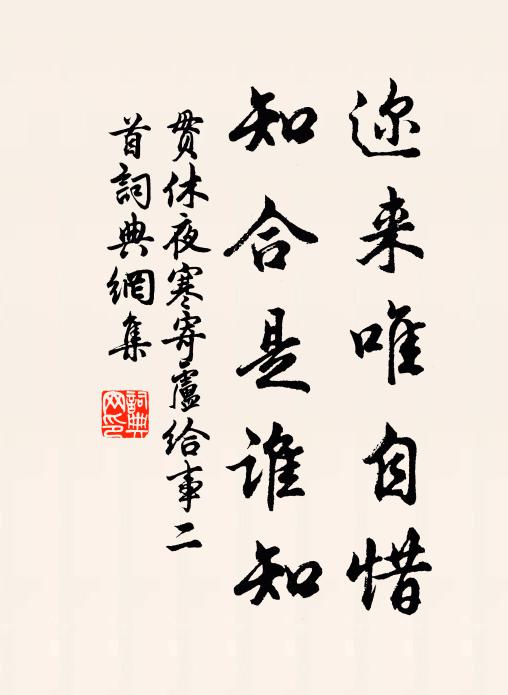 迩来唯自惜
知合是谁知
贯休夜寒寄卢给事二
首词典网集
词典网印